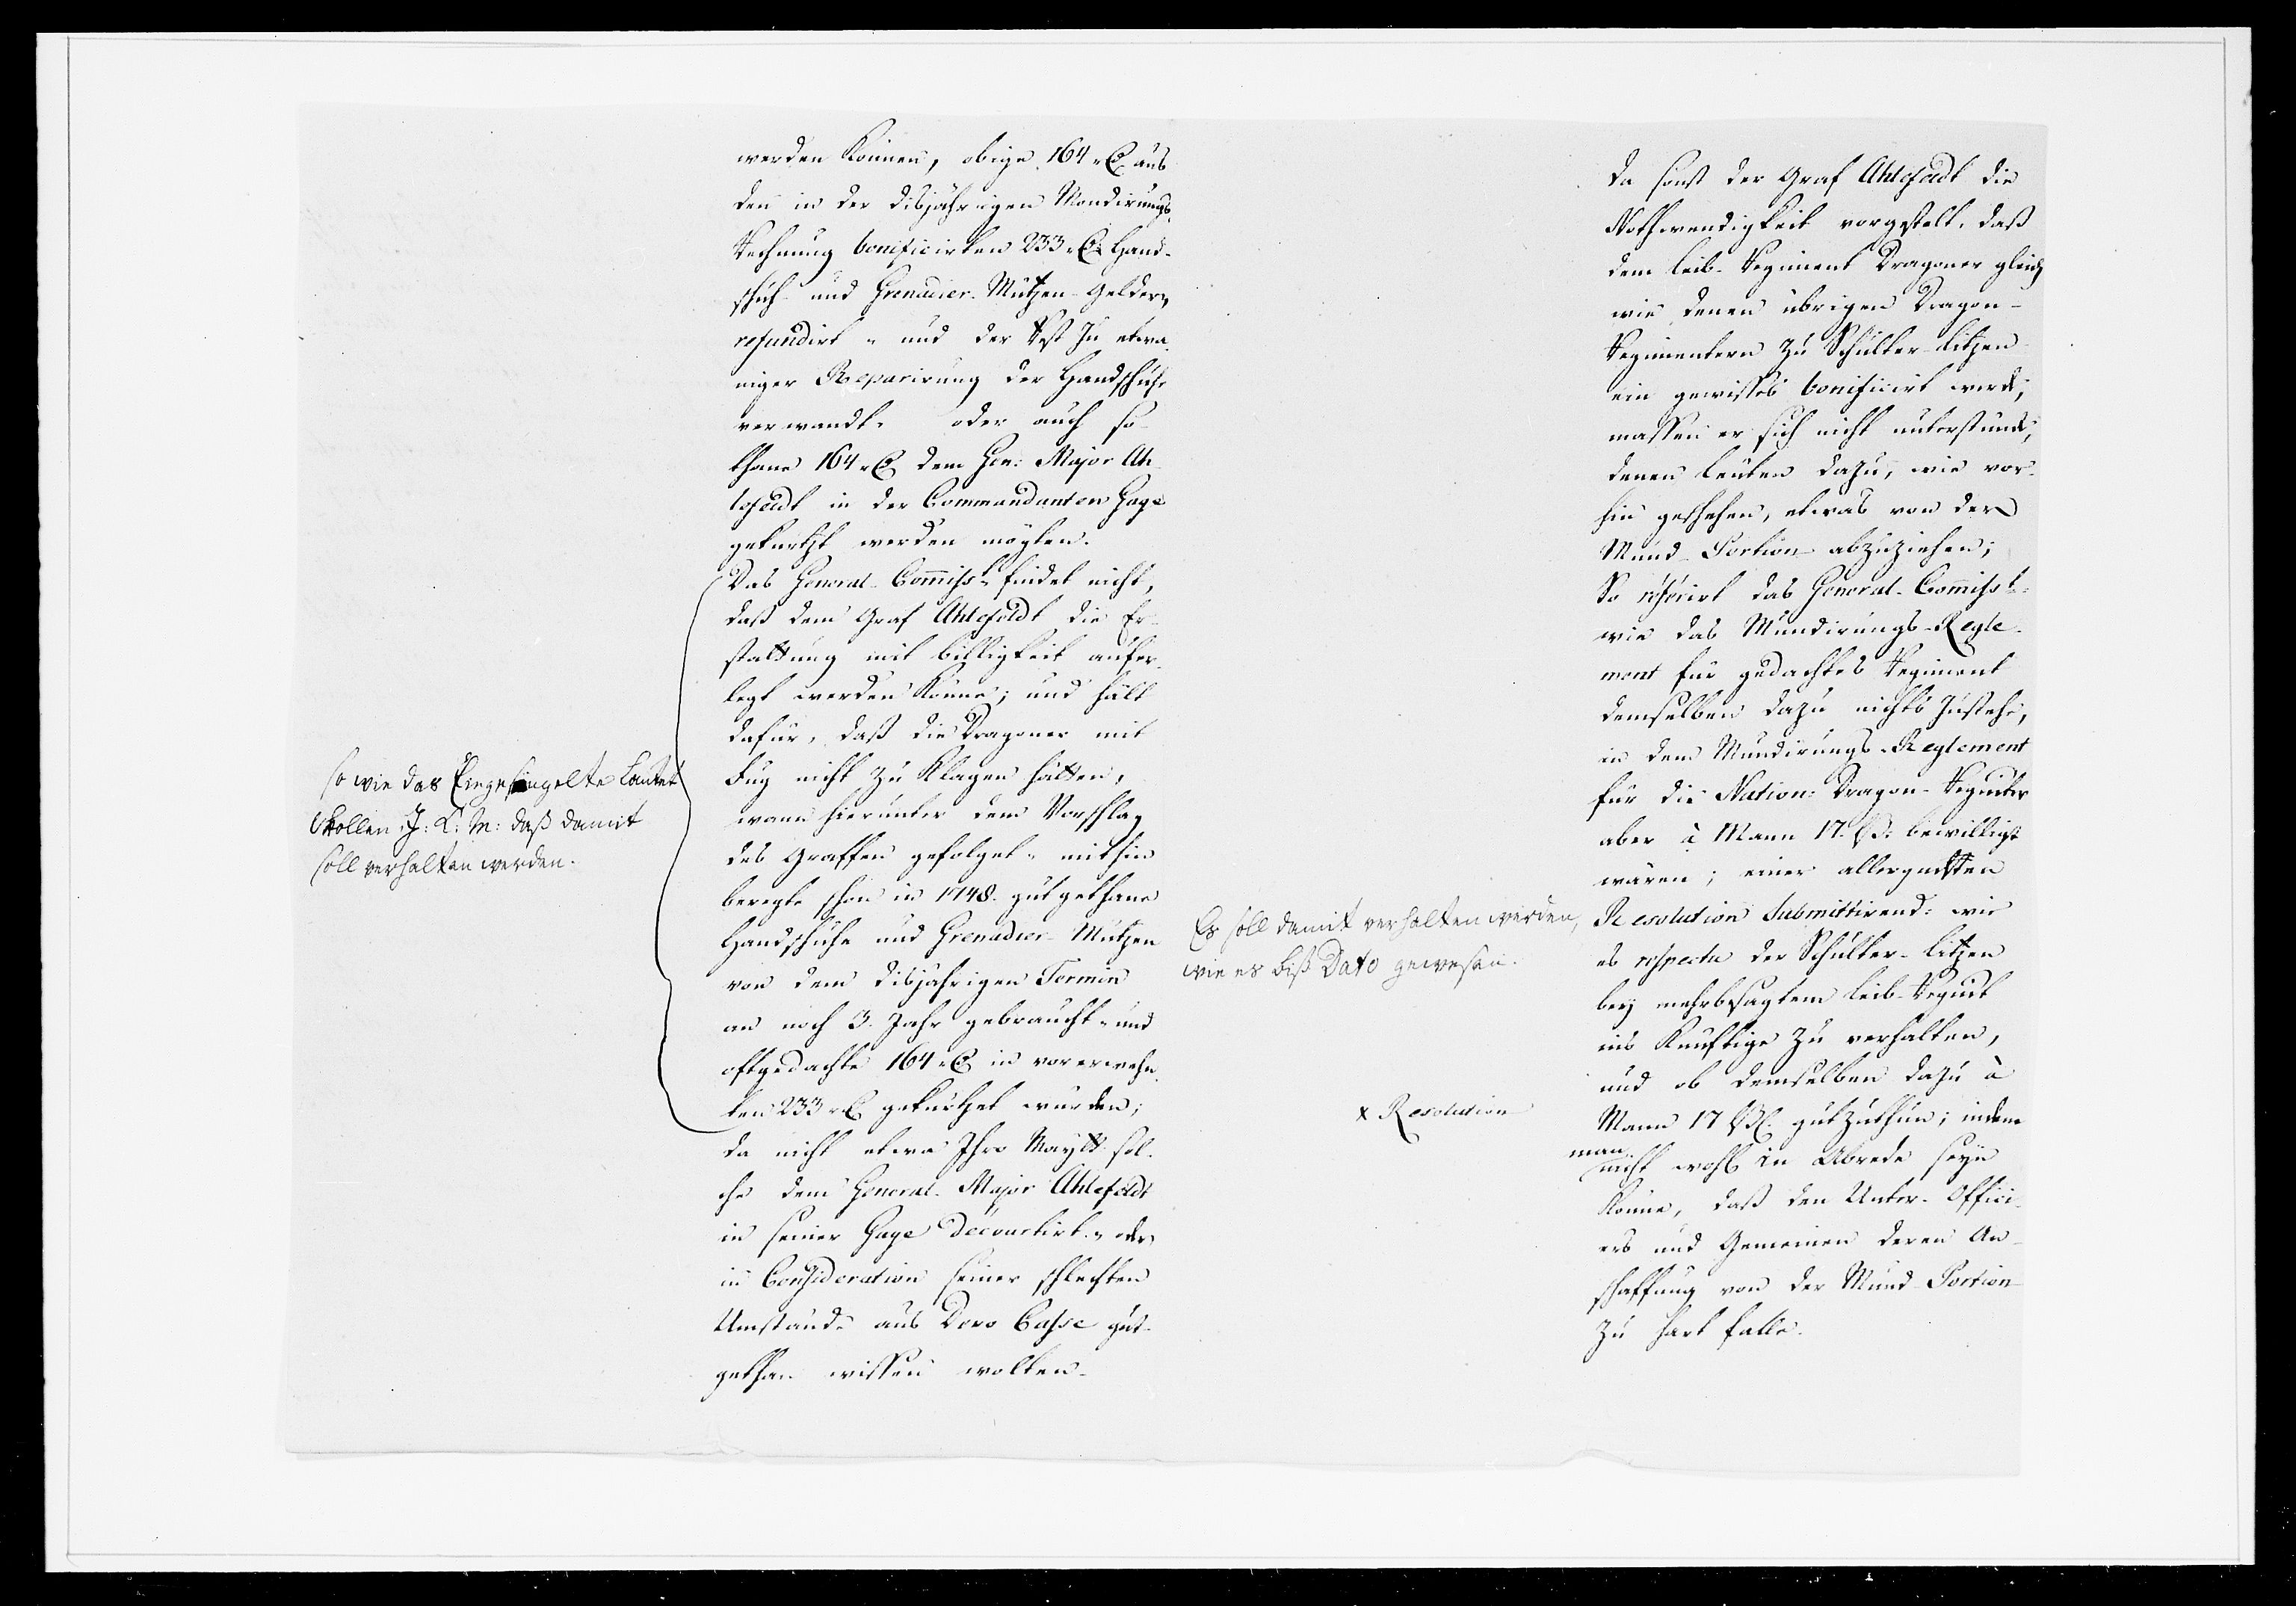 werden können, obige 164 r aus
den in der disjährigen Mondirungs-
Rechnung bonificirten 233 r Hand-
schuh- und Grenadier-Mützen-Gelder,
refundirt - und der Rest zu etwa-
niger Reparirung der Handschuh
verwandt - oder auch so-
thane 164 r dem Gen: Major Ah-
lefeldt in der Commandanten Gage
gekürtzt werden mögten.
Das General-Commiss: findet nicht,
daß dem Graf Ahlefeldt die Er-
stattung mit billigkeit aufer-
legt werden könne; und hält
dafür, daß die Dragoner mit
Fug nicht zu klagen hätten,
wann hierunter dem Vorschlag
des Graffen gefolget - mithin
beregte schon in 1748. gutgethane
Handschuhe und Grenadier-Mützen
von dem disjährigen Termin
an noch 3. Jahr gebraucht - und
oftgedachte 164 r in vorerwehn-
ten 233 r gekürtzet würden;
da nicht etwa Ihro Maytt sol-
che dem General-Major Ahlefeldt
in seiner Gage decourtirt - oder
in Consideration seiner schlechten
Umstände aus Dero Casse gut-
gethan wissen wolten.
so wie das Eingesingelte Lautet
Wollen J: K: M: daß damit
soll verhalten werden.
Da sonst der Graf Ahlefeldt die
Nothwendigkeit vorgestelt, daß
dem Leib-Regiment Dragoner gleich
wie denen übrigen Dragon-
Regimentern zu Schulter-Litzen
ein gewisses bonificirt werde,
massen er sich nicht unterstünde,
denen Leuten dazu, wie vor-
hin geschehen, etwas von der
Mund-Portion abzuziehen;
So referirt das General-Commisst:
wie das Mundirungs-Regle-
ment für gedachtes Regiment
demselben dazu nichts zustehe,
in dem Mundirungs-Reglement
für die Nation: Dragon-Regimter
aber à Mann 17. ß: bewilligt
wären; einer allergndsten
Resolution submittirend: wie
es respectu der Schulter-Litzen
bey mehrbesagtem Leib-Regimt
ins Künftige zu verhalten,
und ob demselben dazu à
Mann 17 ß. gutzuthun; indem
man
nicht wohl in Abrede seyn
könne, daß den Unter-Offici-
ers und Gemeinen deren An-
schaffung von der Mund-Portion
zu hart falle.
Es soll damit verhalten werden,
wie es biß Dato gewesen.
x Resolution